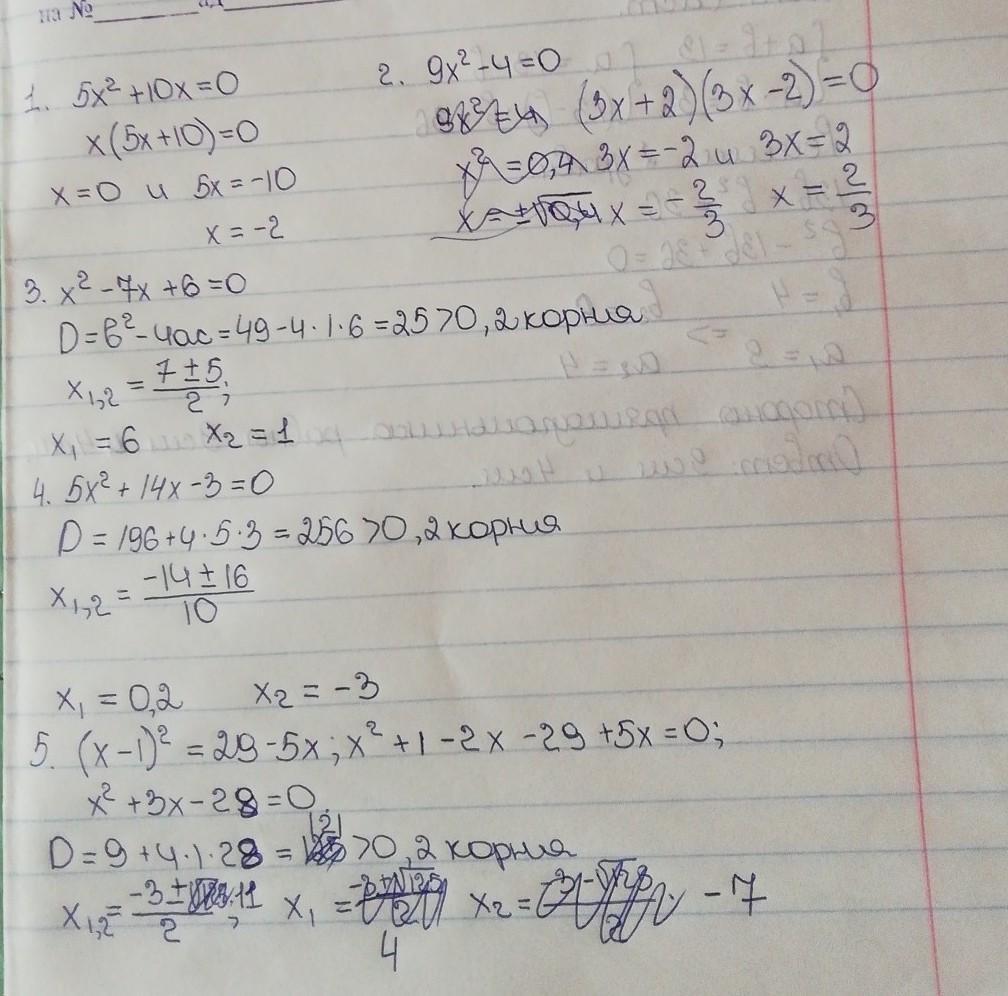 на №
1. 5x² + 10x = 0
x(5x+10) = 0
x = 0 и 5x = -10
x = -2
2. 9x² - 4 = 0
(3x+2)(3x-2) = 0
3x = -2 и 3x = 2
x = -2/3 x = 2/3
3. x² - 7x + 6 = 0
D = b² - 4ac = 49 - 4·1·6 = 25 > 0, 2 корния
x₁,₂ = (7 ± 5)/2;
x₁ = 6 x₂ = 1
4. 5x² + 14x - 3 = 0
D = 196 + 4·5·3 = 256 > 0, 2 корния
x₁,₂ = (-14 ± 16)/10
x₁ = 0,2 x₂ = -3
5. (x-1)² = 29 - 5x; x² + 1 - 2x - 29 + 5x = 0;
x² + 3x - 28 = 0
D = 9 + 4·1·28 = 121 > 0, 2 корния
x₁,₂ = (-3 ± 11)/2; x₁ = 4 x₂ = -7